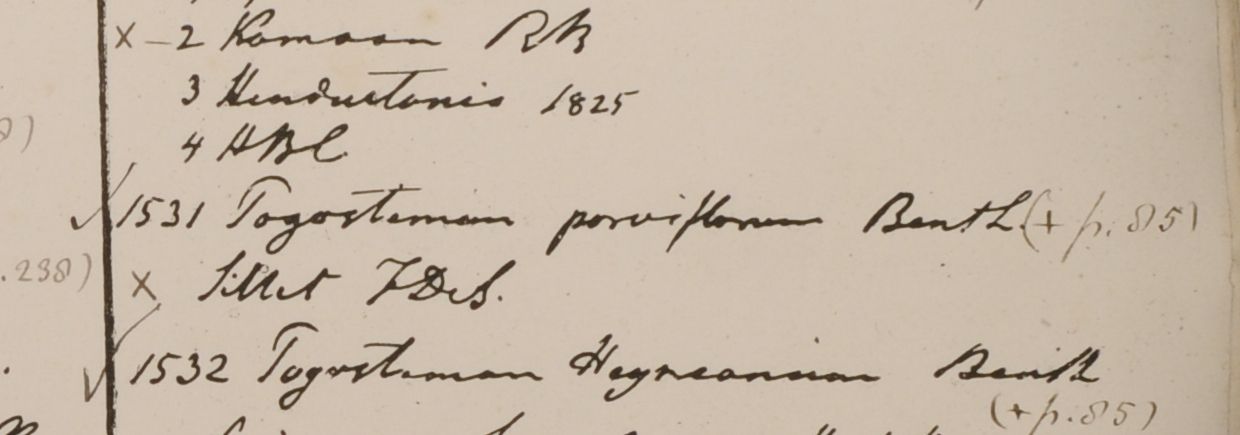 × – 2 Kamaon RB
3 Hindustania 1825
4 HBC
1531 Pogostemon parviflorum Benth (+ p. 85)
.238) × Sillet FDeS.
1532 Pogostemon Heyneanum Benth
(+ p. 85)